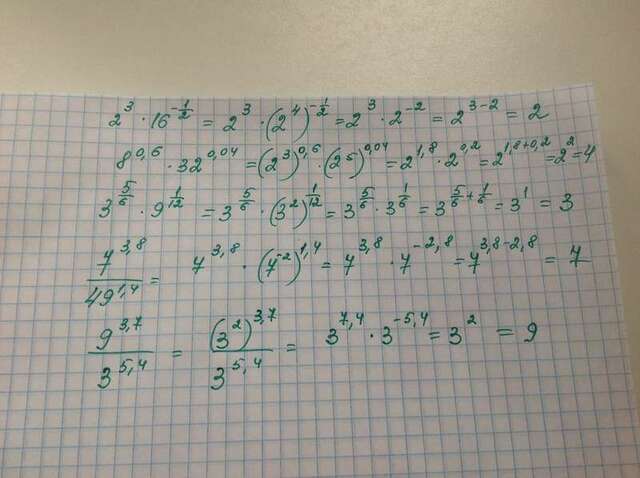 2³ · 16^(-1/2) = 2³ · (2⁴)^(-1/2) = 2³ · 2⁻² = 2^(3-2) = 2
8^(0,6) · 32^(0,04) = (2³)^(0,6) · (2⁵)^(0,04) = 2^(1,8) · 2^(0,2) = 2^(1,8+0,2) = 2² = 4
3^(5/6) · 9^(1/12) = 3^(5/6) · (3²)^(1/12) = 3^(5/6) · 3^(1/6) = 3^(5/6+1/6) = 3¹ = 3
7^(3,8) / 49^(1,4) = 7^(3,8) · (7⁻²)^(1,4) = 7^(3,8) · 7^(-2,8) = 7^(3,8-2,8) = 7
9^(3,7) / 3^(5,4) = (3²)^(3,7) / 3^(5,4) = 3^(7,4) · 3^(-5,4) = 3² = 9